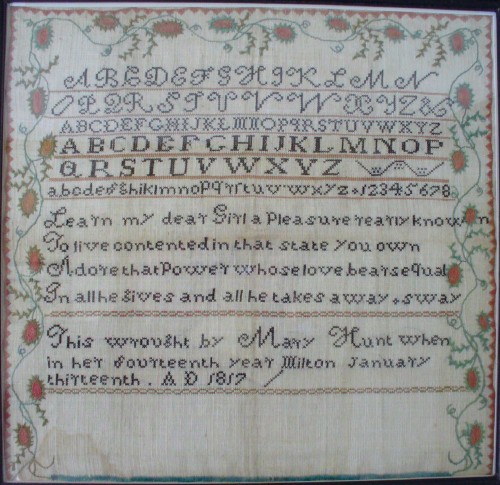 A B C D E F G H I K L M N
O P Q R S T U V W X Y Z &
ABCDEFGHIJKLMNOPQRSTUVWXYZ
ABCDEFGHIJKLMNOP
QRSTUVWXYZ
abcdefghiklmnopqrstuvwxyz 12345678
Learn my dear Girl a Pleasure rearly known
To live contented in that state you own
Adore that Power whose love bears equal
In all he gives and all he takes away + sway
This wrought by Mary Hunt when
in her fourteenth year Milton January
thirteenth . A D 1817